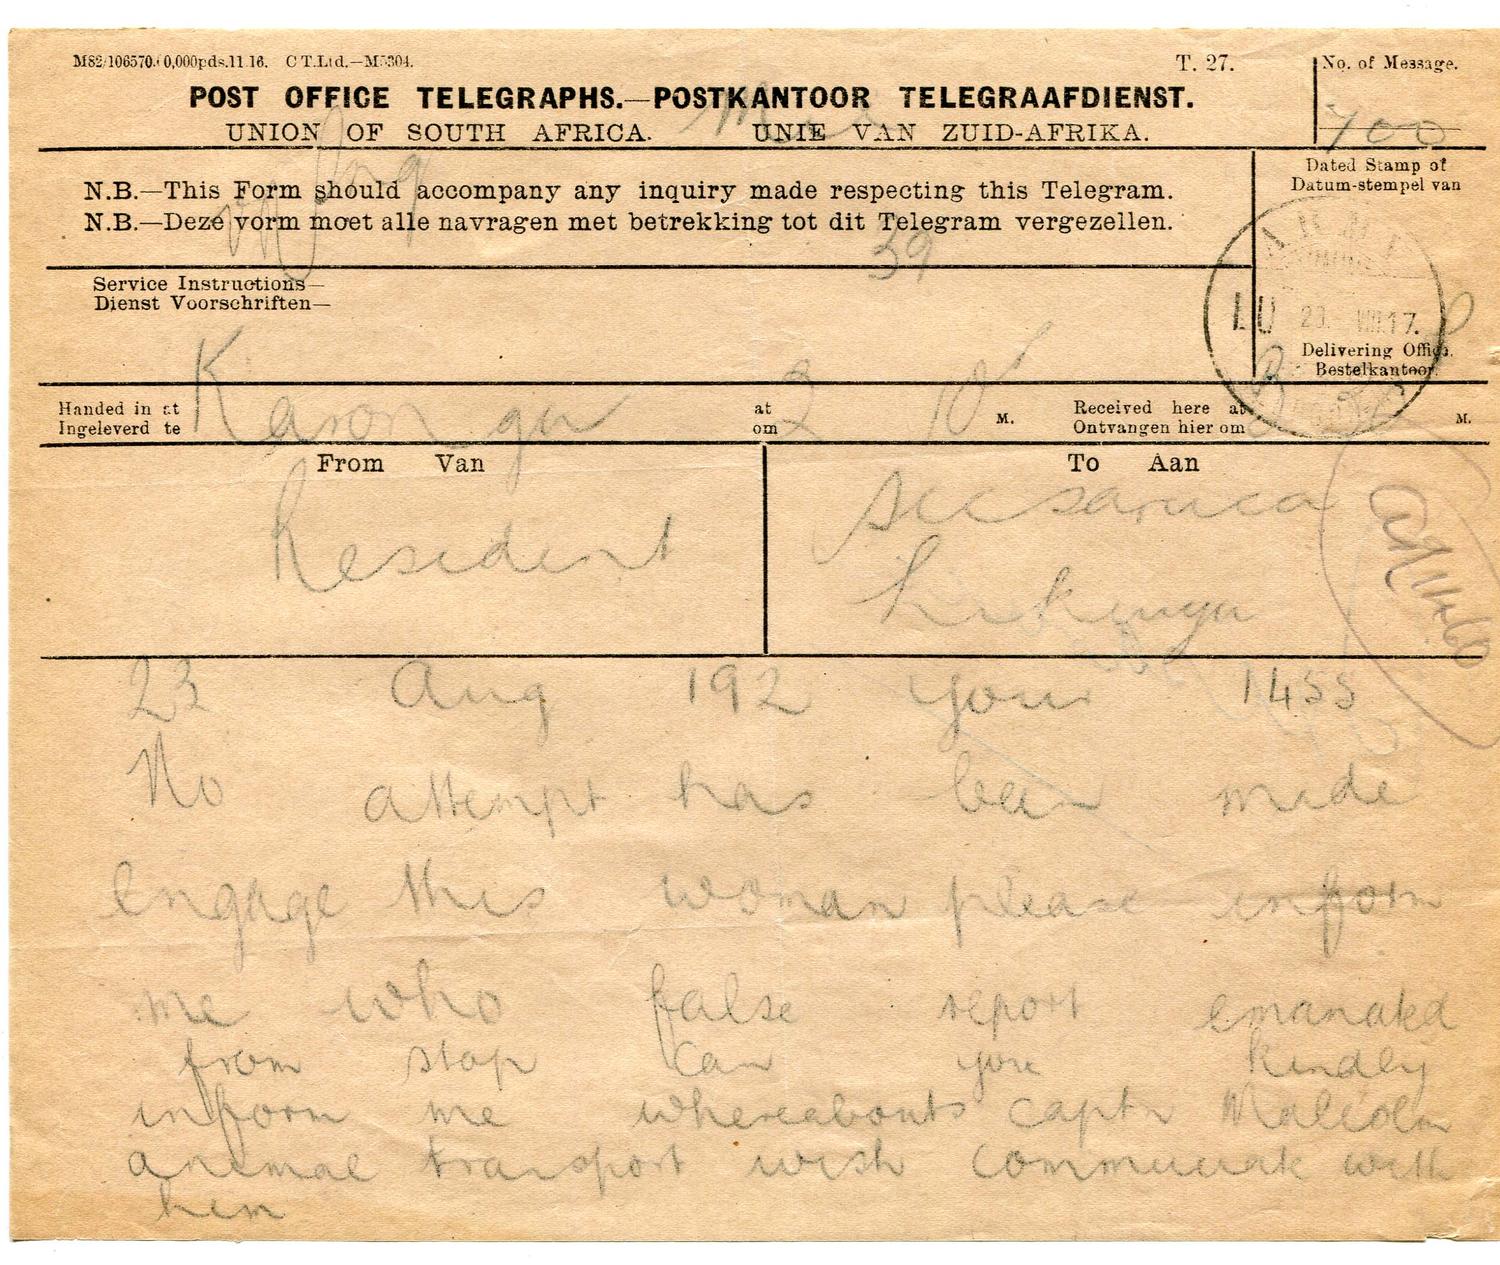 T. 27.
No. of Message.
POST OFFICE TELEGRAPHS.—POSTKANTOOR TELEGRAAFDIENST.
UNION OF SOUTH AFRICA. UNIE VAN ZUID-AFRIKA.
700
N.B.—This Form should accompany any inquiry made respecting this Telegram.
N.B.—Deze vorm moet alle navragen met betrekking tot dit Telegram vergezellen.
39
Dated Stamp of
Datum-stempel van
Service Instructions—
Dienst Voorschriften—
Delivering Office.
Bestelkantoor.
Handed in at
Ingeleverd te
Karonga
at
om
M.
Received here at
Ontvangen hier om
M.
From Van
To Aan
Resident
23 Aug 192 your 1455
No attempt has been made
engage this woman please inform
me who false report emanated
from stop can you kindly
inform me whereabouts captn Malcolm
animal transport wish communicate with
him